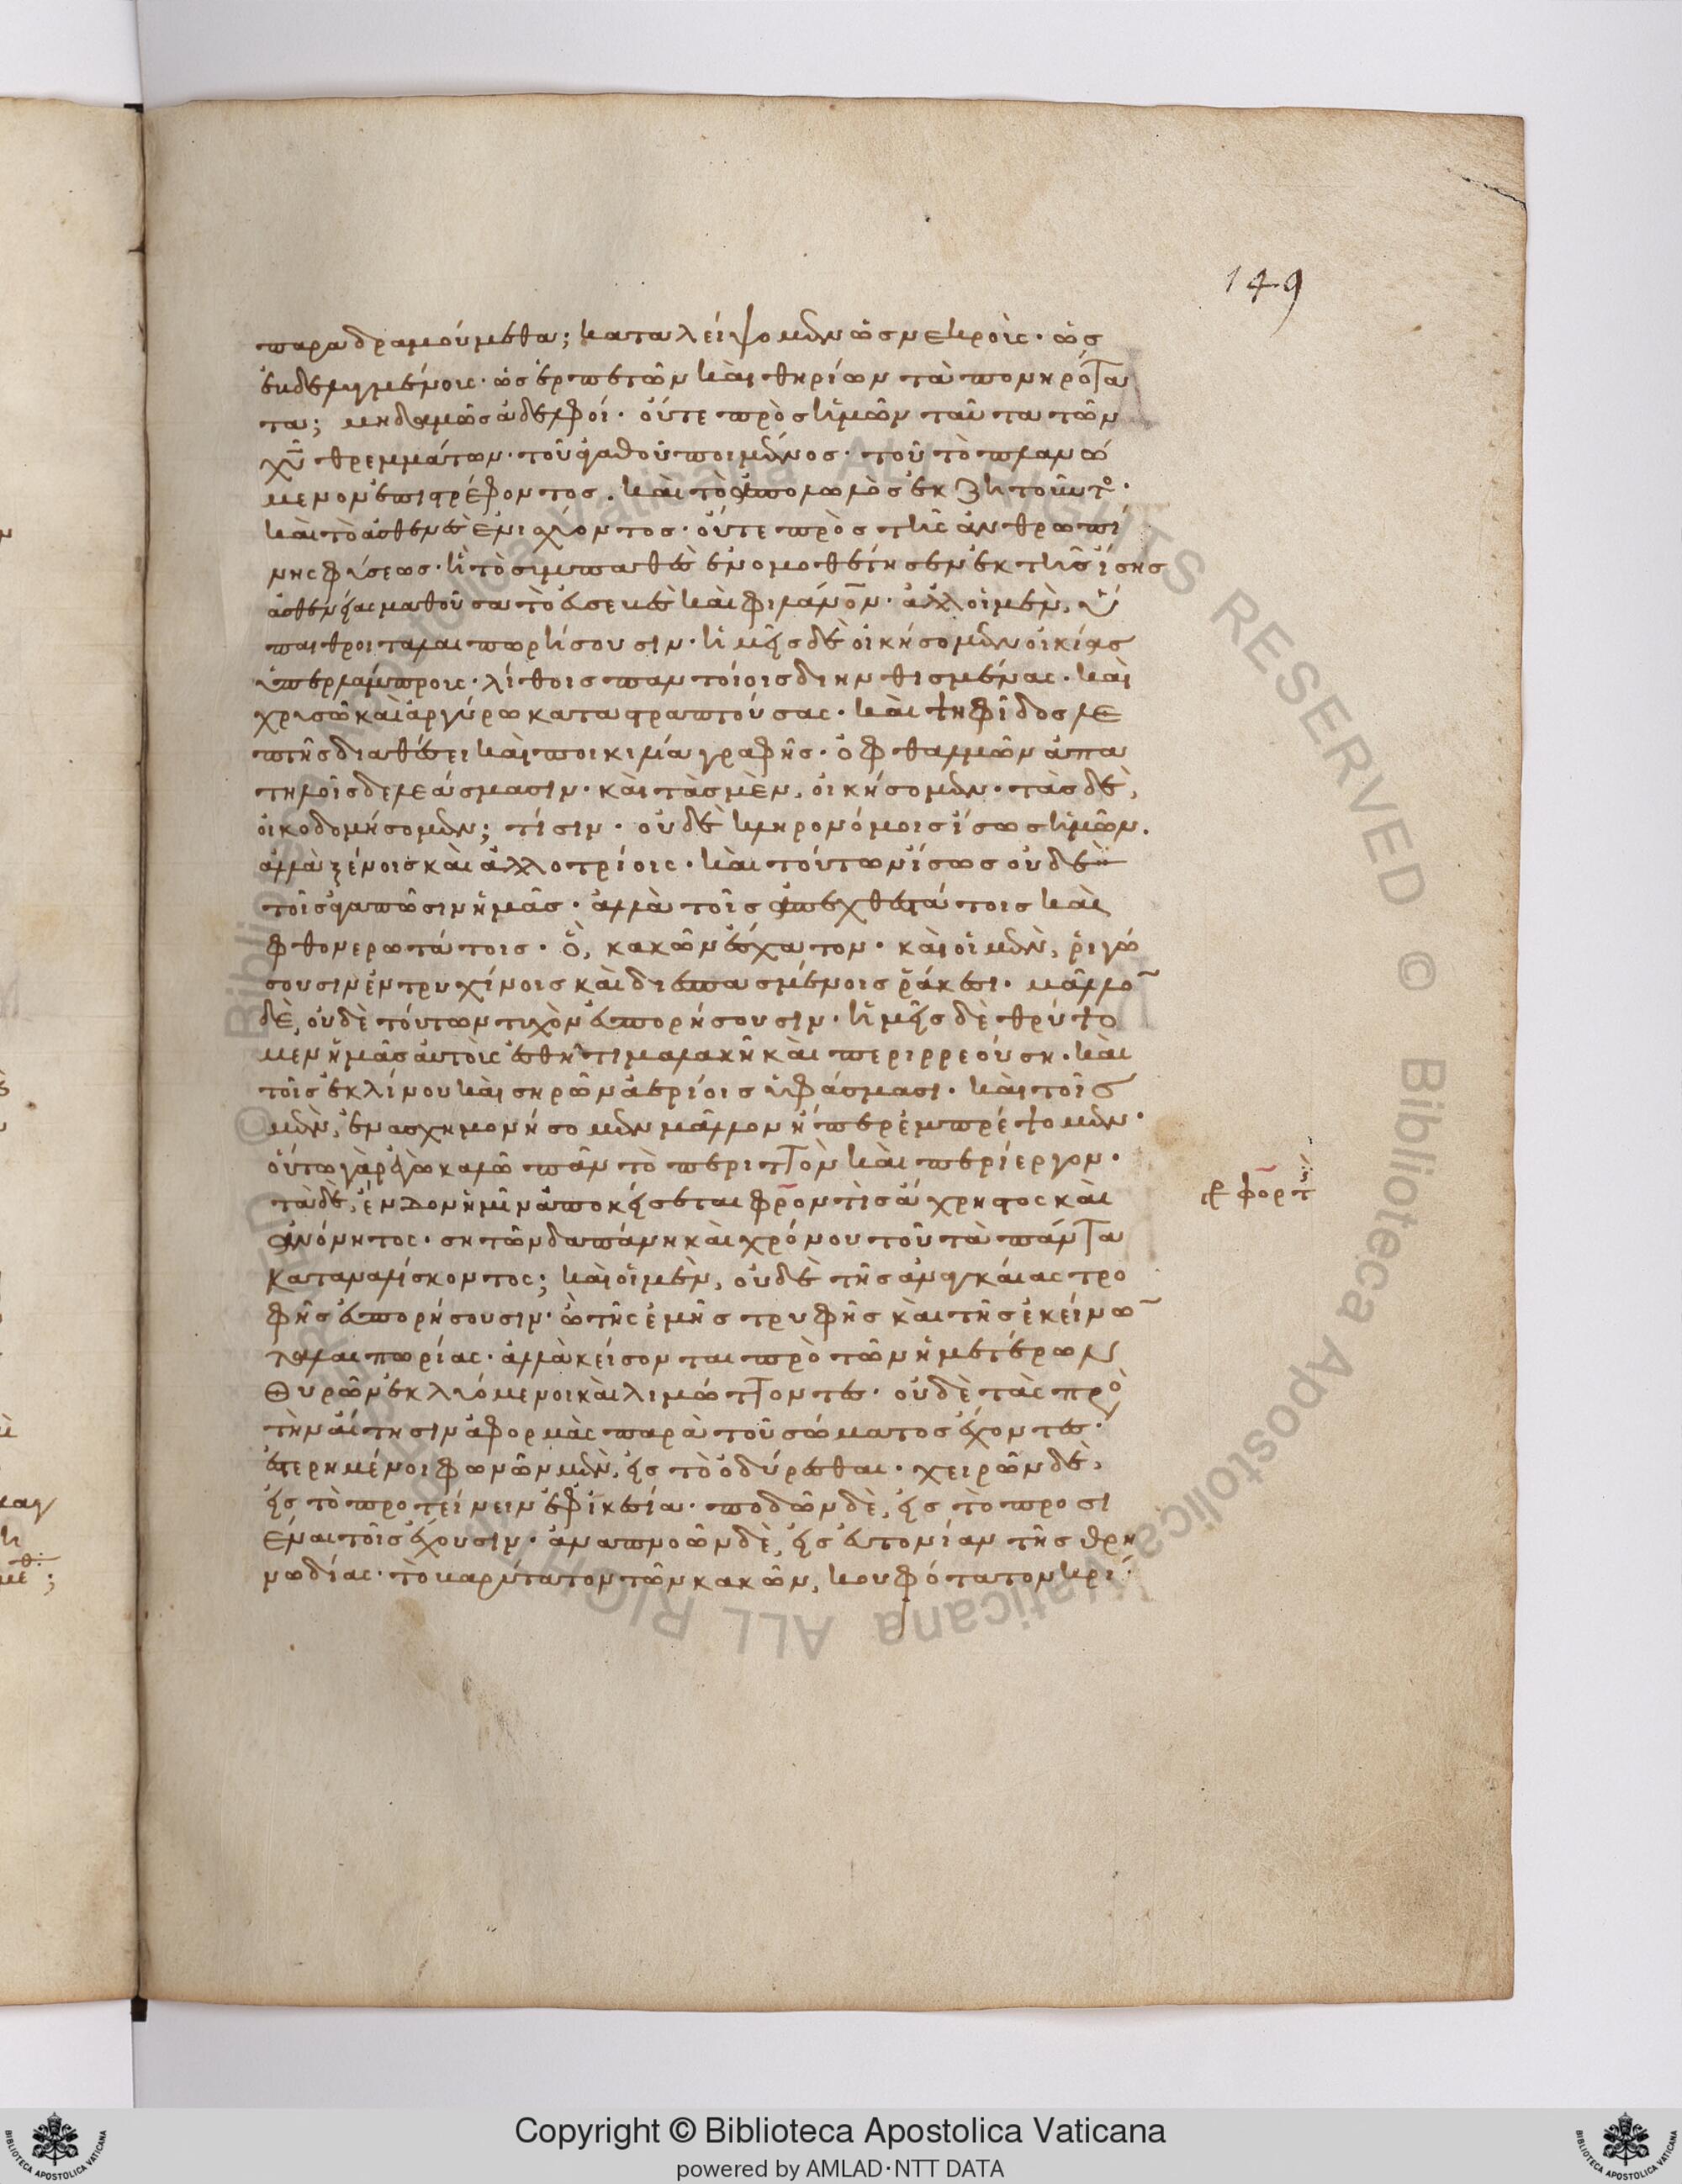 149
παραδραμούμεθα; καταλείψομεν ὡς νεκροὺς· ὡς
ἐβδελυγμένους· ὡς ἑρπετῶν καὶ θηρίων τὰ πονηρότα
τα; μηδαμῶς ἀδελφοί· οὔτε πρὸς ἡμῶν ταῦτα τῶν
χῦ θρεμμάτων· τοῦ ἀγαθοῦ ποιμένος· τοῦ τὸ πλανώ
μενον ἐπιστρέφοντος· καὶ τὸ ἀπολωλὸς ἐκζητοῦντος·
καὶ τὸ ἀσθενὲς ἐνισχύοντος· οὔτε πρὸς τῆς ἀνθρωπί
νης φύσεως· ἣ τὸ συμπαθὲς ἐνομοθέτησεν ἐκ τῆς ἴσης
ἀσθενείας μαθοῦσα τὸ εὐσεβὲς καὶ φιλάνον· ἀλλ' οἱ μὲν, ὕ
παιθροι ταλαιπωρήσουσιν· ἡμεῖς δὲ οἰκήσομεν οἰκίας
ὑπερλάμπρους· λίθοις παντοίοις διηνθισμένας· καὶ
χρυσῷ καὶ ἀργύρῳ καταστραπτούσας· καὶ ψηφῖδος λε
πτῆς διαθέσει καὶ ποικιλία γραφῆς· ὀφθαλμῶν ἀπα
τηλοῖς δελεάσμασιν· καὶ τὰς μὲν, οἰκήσομεν· τὰς δὲ,
οἰκοδομήσομεν; τίσιν· οὐδὲ κληρονόμοις ἴσως ἡμῶν.
ἀλλὰ ξένοις καὶ ἀλλοτρίοις· καὶ τούτων ἴσως οὐδὲ
τοῖς ἀγαπῶσιν ἡμᾶς· ἀλλὰ τοῖς ἀπεχθεστάτοις καὶ
φθονερωτάτοις· ὃ, κακῶν ἔσχατον· καὶ οἱ μὲν, ῥιγώ
σουσιν ἐν τρυχίνοις καὶ διεσπασμένοις ῥάκεσι· μᾶλλο
δὲ, οὐδὲ τούτων τυχὸν εὐπορήσουσιν· ἡμεῖς δὲ θρύψο
μεν ἡμᾶς αὐτοὺς ἐσθῆτι μαλακῆ καὶ περιρρεούση· καὶ
τοῖς ἐκ λίνου καὶ σηρῶν ἀερίοις ὑφάσμασι· καὶ τοῖς
μὲν, ἐνασχημονήσομεν μᾶλλον ἤπερ ἐμπρέψομεν·
οὕτω γὰρ ἐγὼ καλῶ πᾶν τὸ περιττὸν καὶ περίεργον·
τὰ δὲ, ἔνδον ἡμῖν ἀποκείσεται φροντὶς ἄχρηστος καὶ
ἀνόνητος· σητῶν δαπάνη καὶ χρόνου τοῦ τὰ πάντα
καταναλίσκοντος; καὶ οἱ μὲν, οὐδὲ τῆς ἀναγκαίας τρο
φῆς εὐπορήσουσιν· ὢ τῆς ἐμῆς τρυφῆς καὶ τῆς ἐκείνω
ταλαιπωρίας· ἀλλὰ κείσονται πρὸ τῶν ἡμετέρων
θυρῶν ἐκλυόμενοι καὶ λιμώττοντες· οὐδὲ τὰς πρὸ
τὴν αἴτησιν ἀφορμὰς παρὰ τοῦ σώματος ἔχοντες·
ἐστερημένοι φωνῶν μὲν, εἰς τὸ ὀδύρεσθαι· χειρῶν δὲ,
εἰς τὸ προτείνειν ἐφ' ἱκεσία· ποδῶν δὲ, εἰς τὸ προσι
έναι τοῖς ἔχουσιν· ἀναπνοῶν δὲ, εἰς εὐτονίαν τῆς θρη
νωδίας· τὸ βαρύτατον τῶν κακῶν, κουφότατον κρί